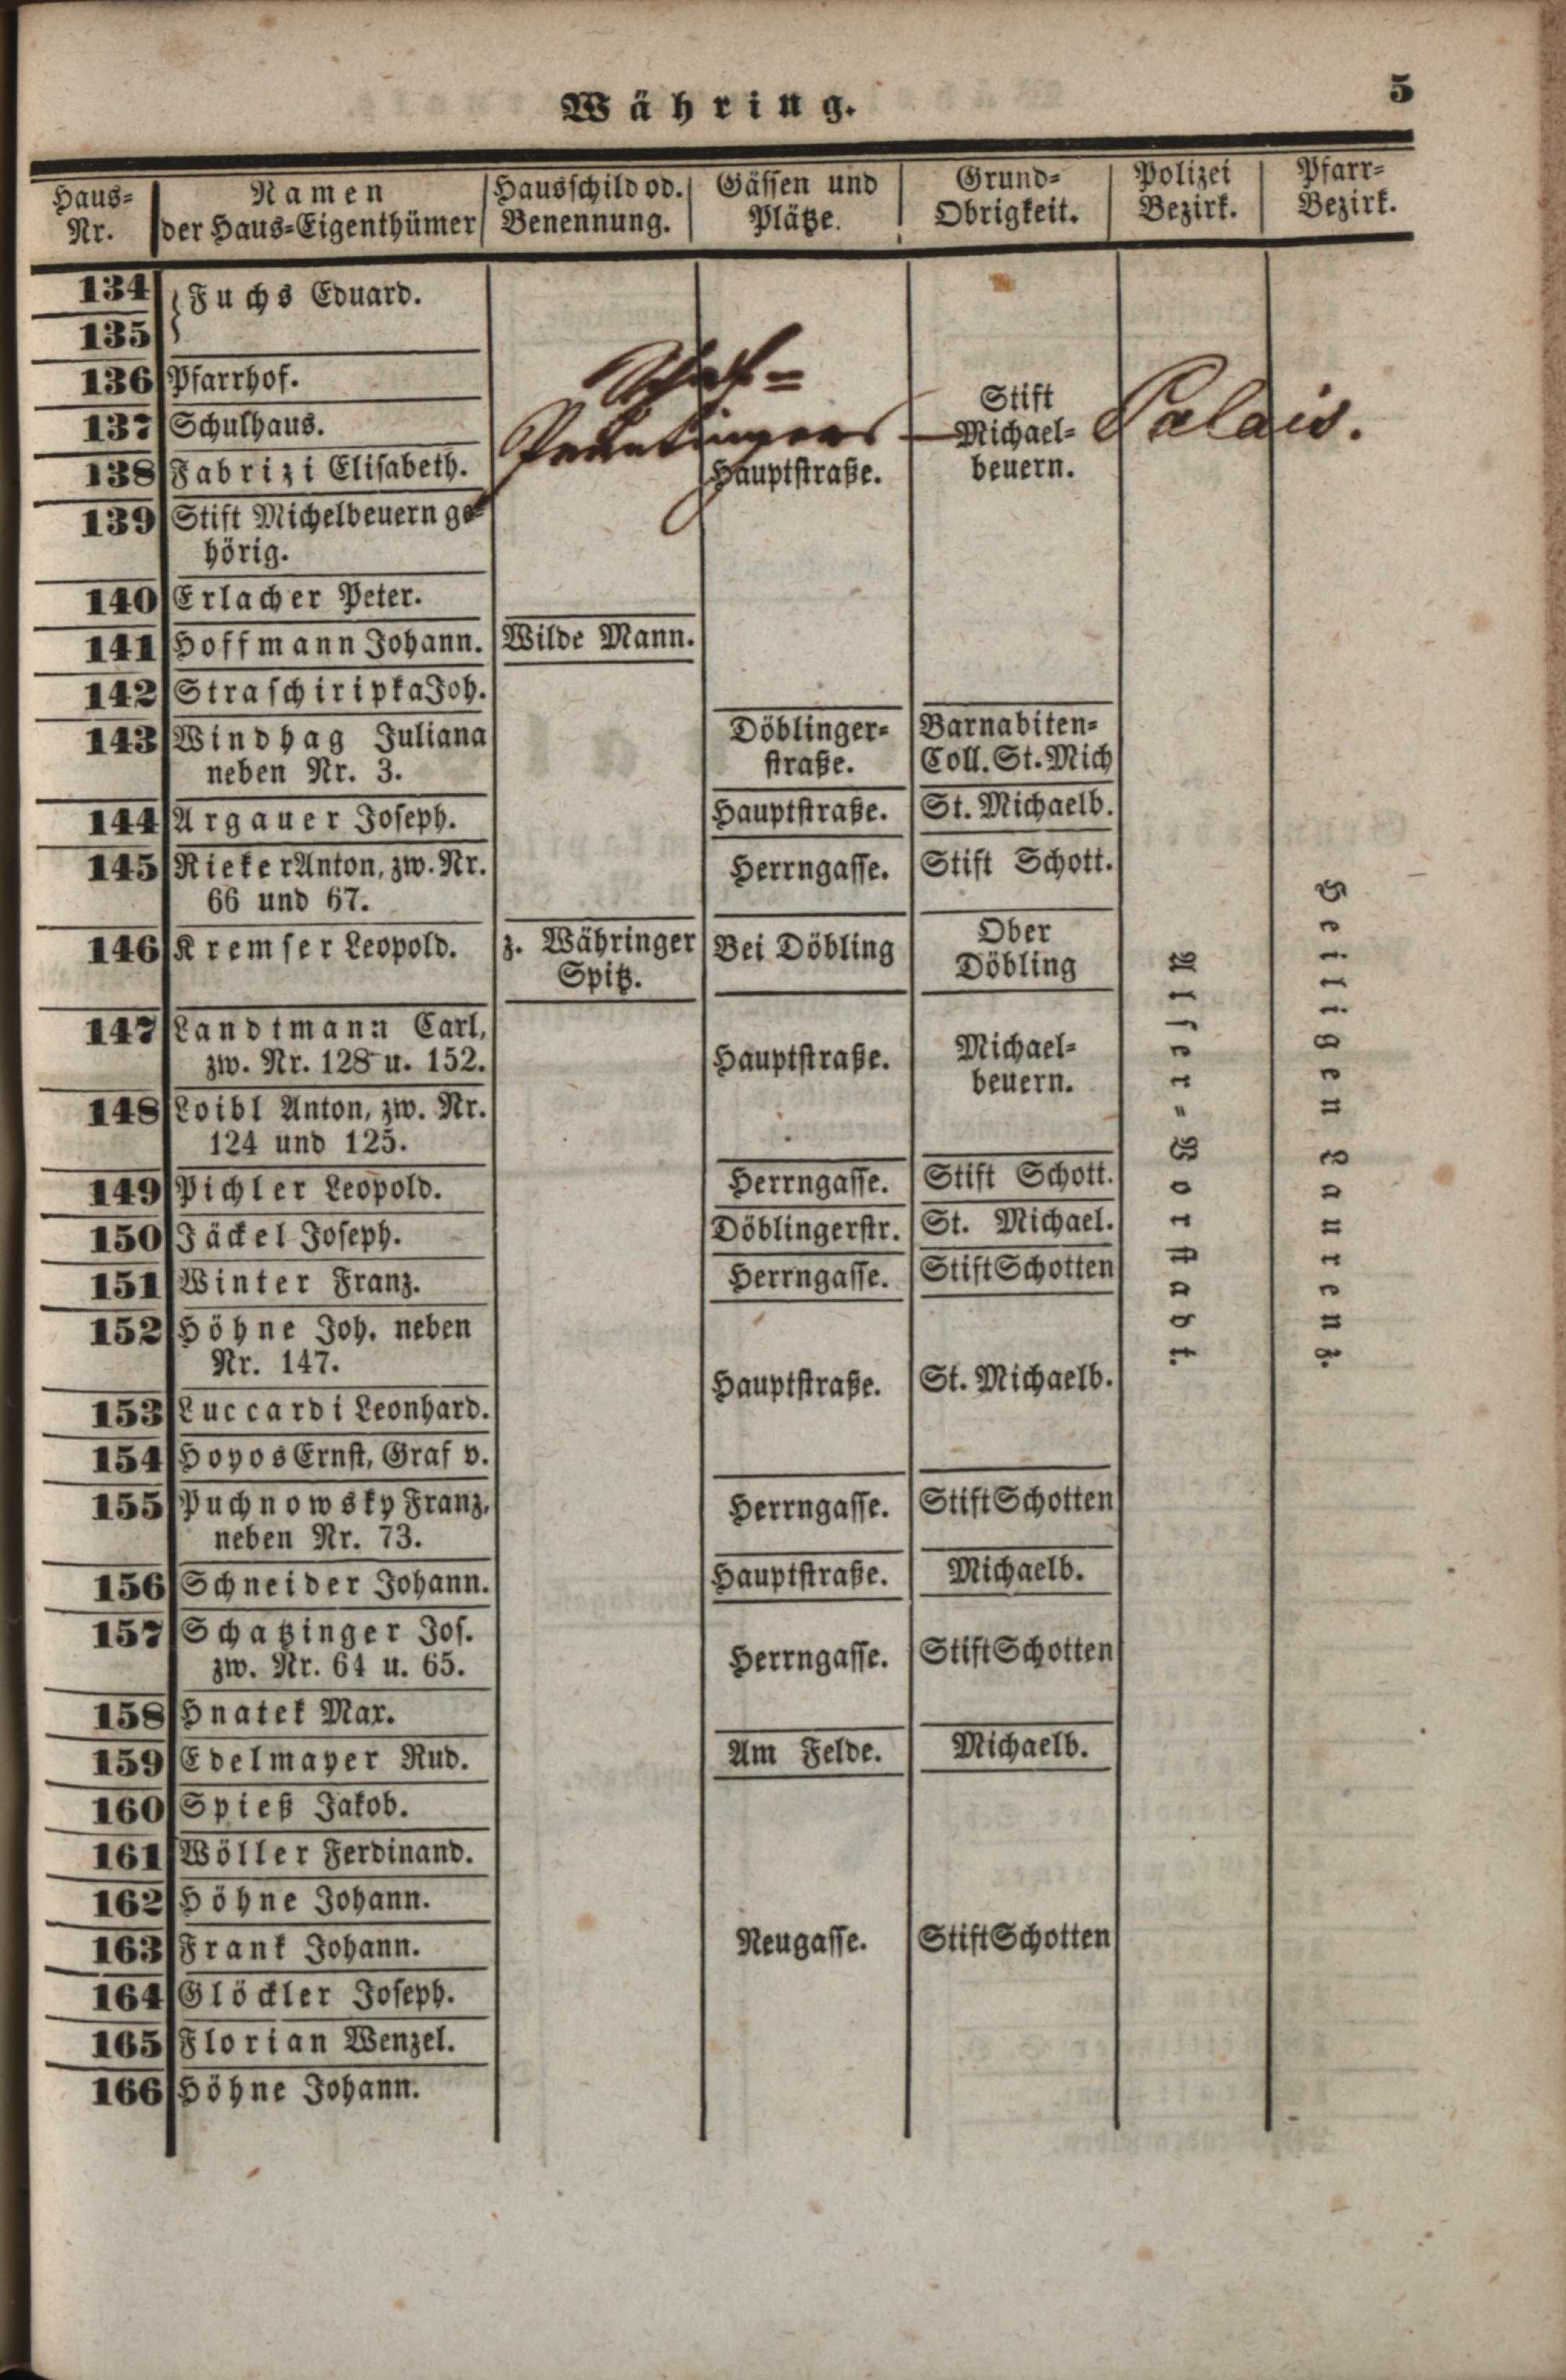 Währing. 5
Haus-Nr. Namen der Haus-Eigenthümer Hausschild od. Benennung. Gässen und Plätze. Grund-Obrigkeit. Polizei Bezirk. Pfarr-Bezirk.
134 Fuchs Eduard.
135
136 Pfarrhof.
137 Schulhaus. Stift
Michael- Palais.
138 Fabrizi Elisabeth. Hauptstraße. beuern.
139 Stift Michelbeuern ge-
hörig.
140 Erlacher Peter.
141 Hoffmann Johann. Wilde Mann.
142 Straschiripka Joh.
143 Windhag Juliana Döblinger- Barnabiten-
neben Nr. 3. straße. Coll. St. Mich
144 Argauer Joseph. Hauptstraße. St. Michaelb.
145 Rieker Anton, zw. Nr. Herrngasse. Stift Schott.
66 und 67.
146 Kremser Leopold. z. Währinger Bei Döbling Ober
Spitz. Döbling
147 Landtmann Carl,
zw. Nr. 128 u. 152. Hauptstraße. Michael-
beuern.
148 Loibl Anton, zw. Nr.
124 und 125.
149 Pichler Leopold. Herrngasse. Stift Schott.
150 Jäckel Joseph. Döblingerstr. St. Michael.
151 Winter Franz. Herrngasse. Stift Schotten
152 Höhne Joh. neben
Nr. 147. Hauptstraße. St. Michaelb.
153 Luccardi Leonhard.
154 Hoyos Ernst, Graf v.
155 Puchnowsky Franz, Herrngasse. Stift Schotten
neben Nr. 73.
156 Schneider Johann. Hauptstraße. Michaelb.
157 Schatzinger Jos. Herrngasse. Stift Schotten
zw. Nr. 64 u. 65.
158 Hnatek Max.
159 Edelmayer Rud. Am Felde. Michaelb.
160 Spieß Jakob.
161 Wöller Ferdinand.
162 Höhne Johann.
163 Frank Johann. Neugasse. Stift Schotten
164 Glöckler Joseph.
165 Florian Wenzel.
166 Höhne Johann.
Alser-Vorstadt.
Heiligen Laurenz.